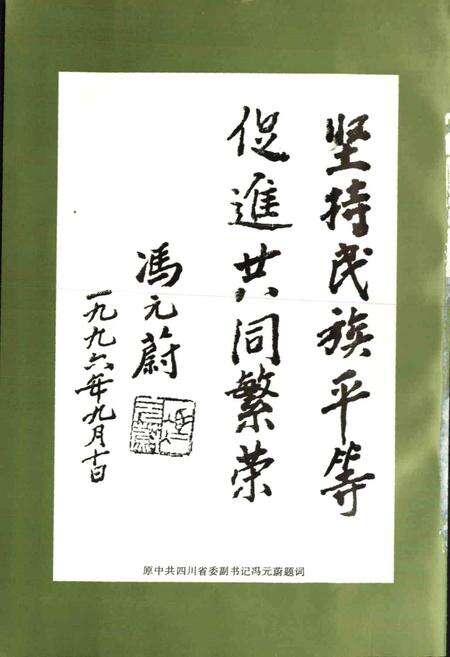 坚持民族平等
促進共同繁荣
冯元蔚
一九九六年九月十日
原中共四川省委副书记冯元蔚题词